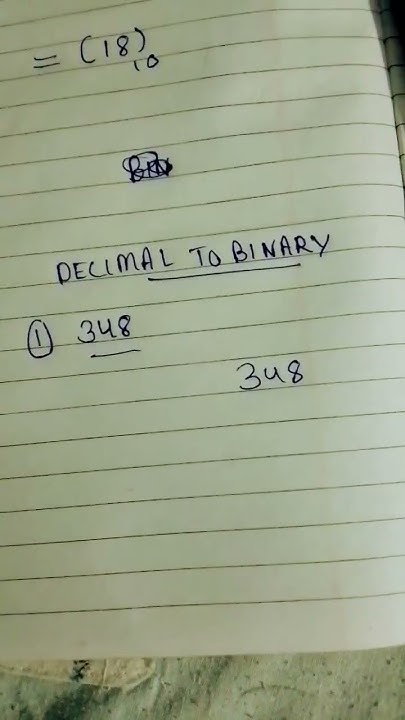 = (18)10
DECIMAL TO BINARY
① 348
348